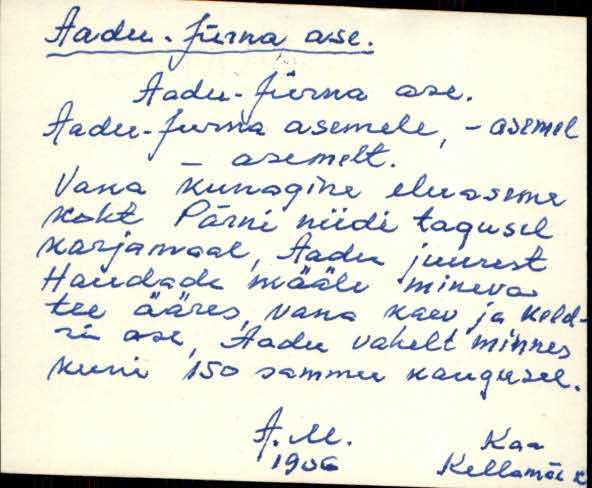 Aadu-Jürna ase.
Aadu-Jürna ase.
Aadu-Jurna asemele, - asemel
- asemelt.
Vana kunagine eluaseme
koht Pärni niidi tagusel
karjamaal, Aadu juurest
Haudade määle mineva
tee ääres, vana kaev ja keld-
ri ase, Aadu vahelt minnes
kuni 150 sammu kaugusel.
A. M. Kaa
1906 Kellamäe k